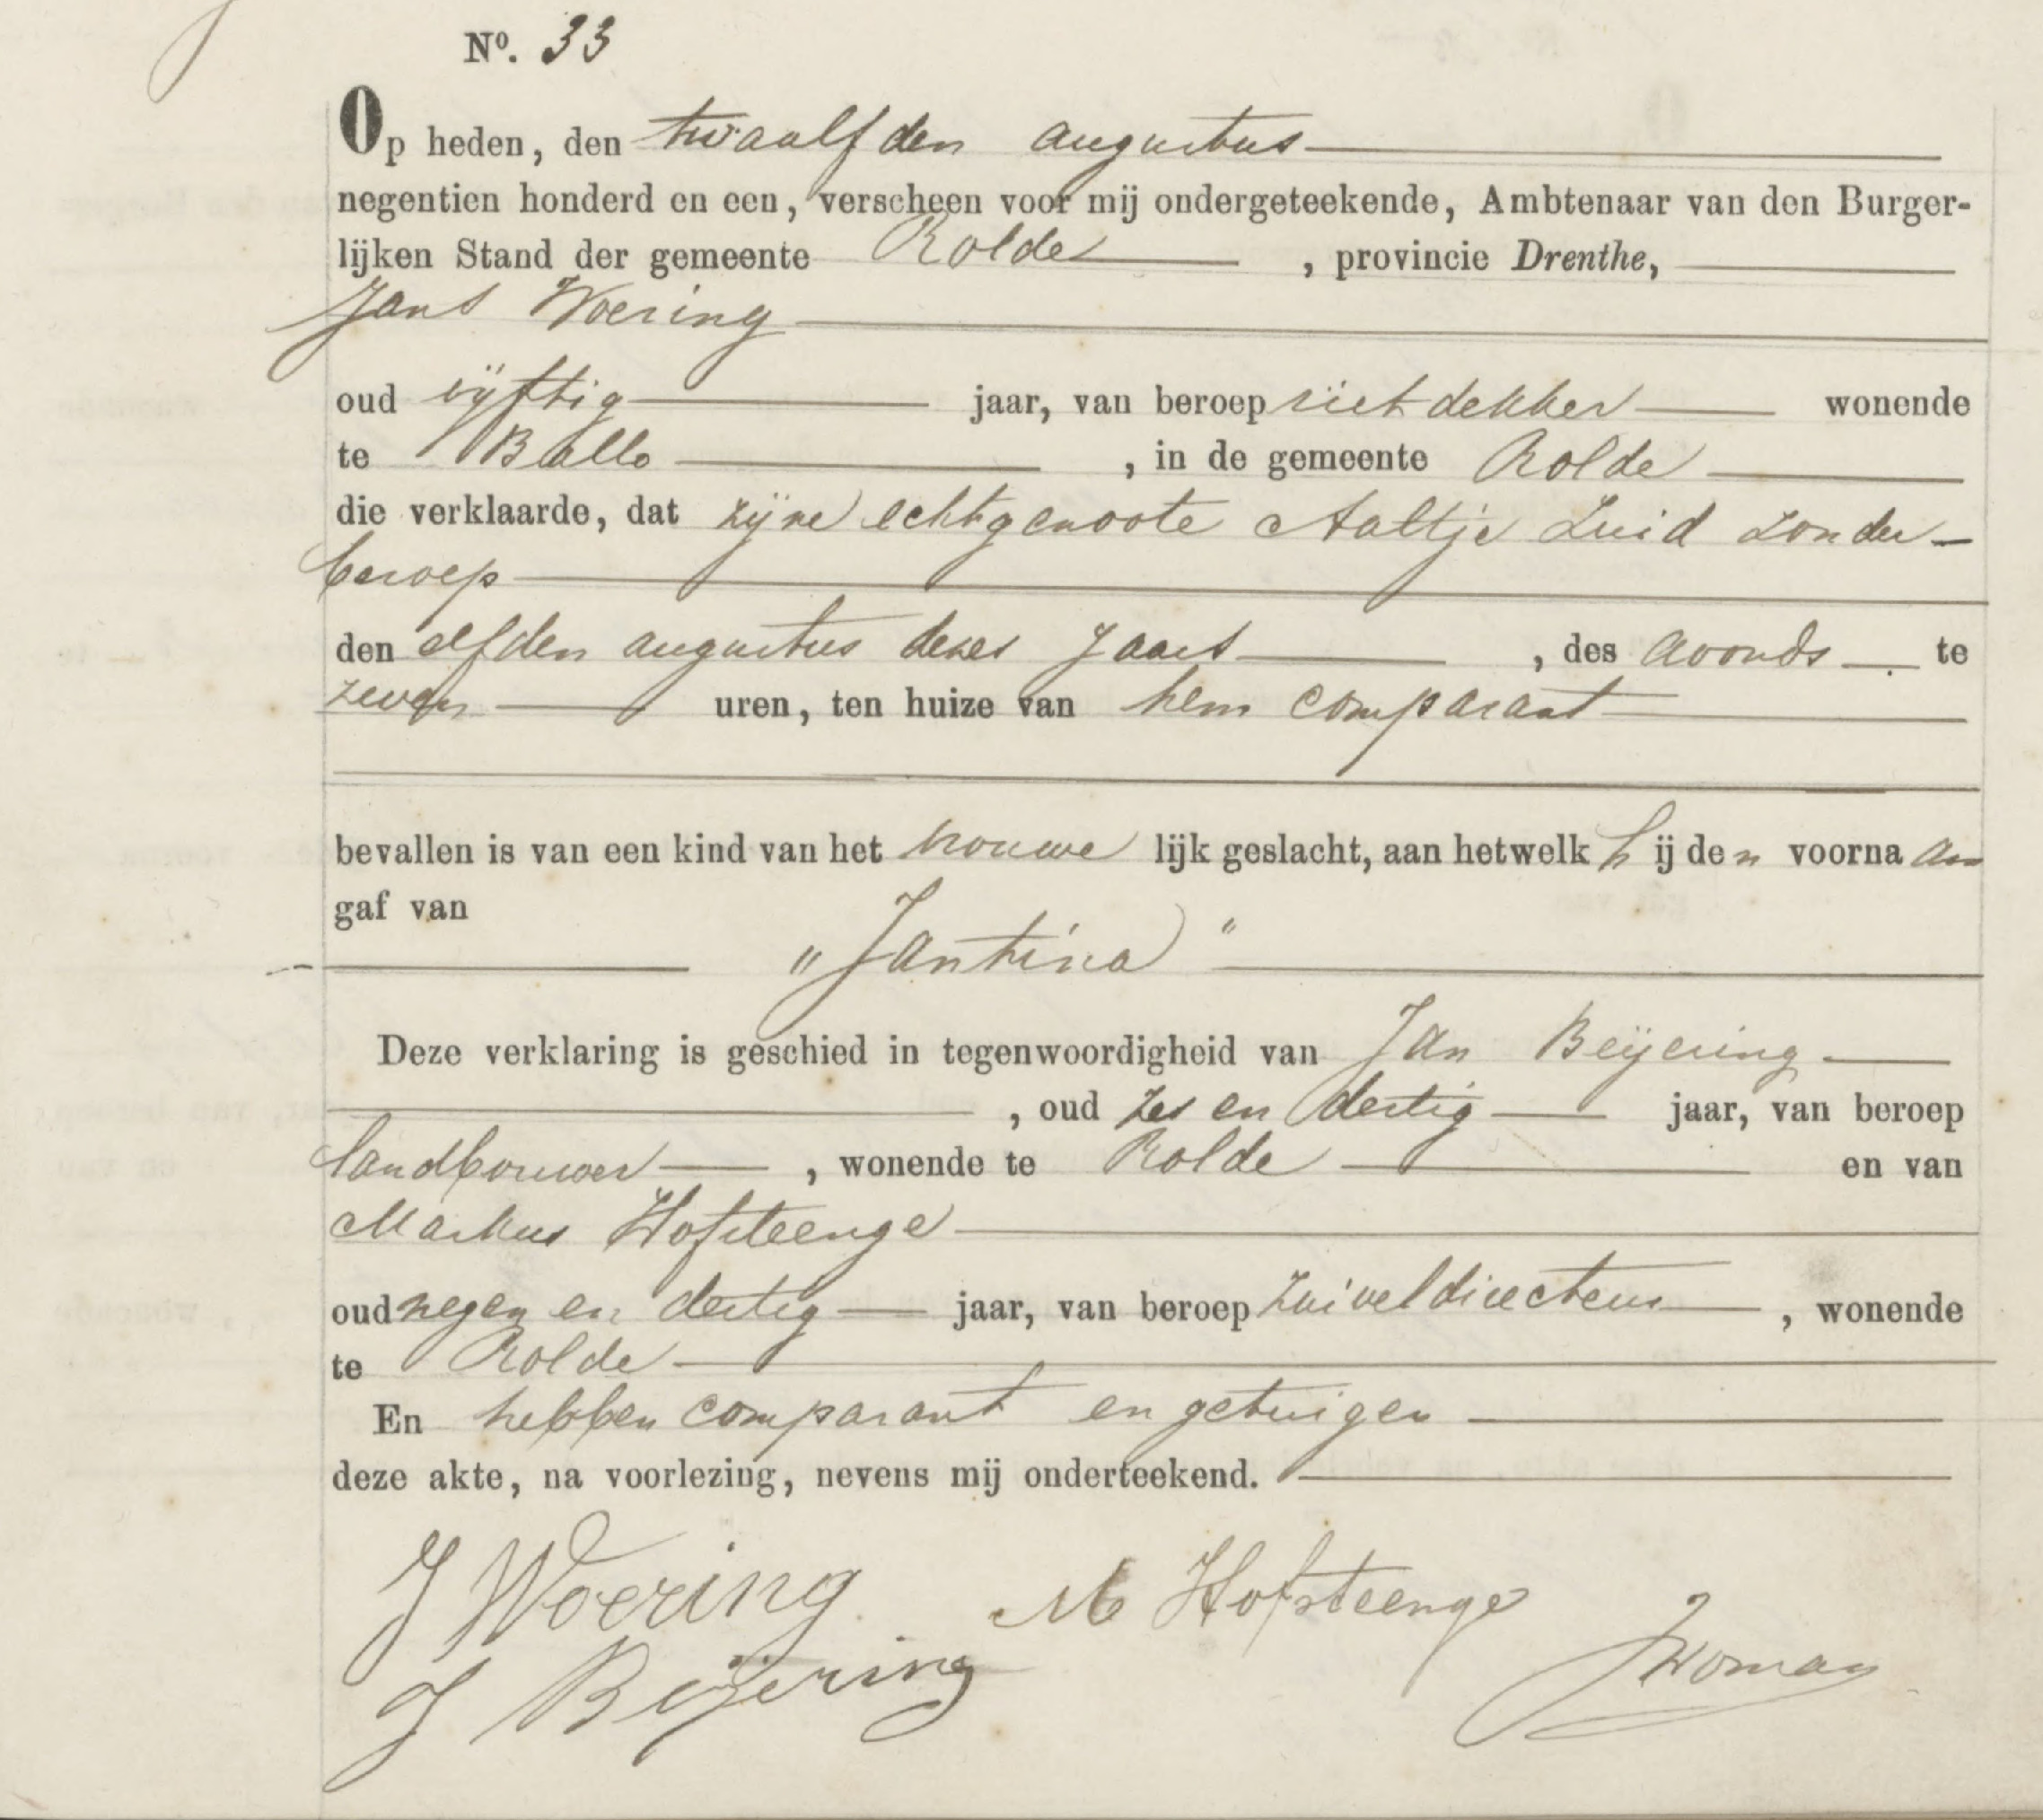 Nº. 33
Op heden, den twaalfden augustus
negentien honderd en een, verscheen voor mij ondergeteekende, Ambtenaar van den Burger-
lijken Stand der gemeente Rolde, provincie Drenthe,
Jans Woering
oud vijftig jaar, van beroep rietdekker wonende
te Ballo, in de gemeente Rolde
die verklaarde, dat zijne echtgenoote Aaltje Zuid zonder
beroep
den elfden augustus dezes jaars, des avonds te
zeven uren, ten huize van hem comparant
bevallen is van een kind van het vrouwelijk geslacht, aan hetwelk hij den voornaam
gaf van
"Jantina"
Deze verklaring is geschied in tegenwoordigheid van Jan Beijering
, oud zes en dertig jaar, van beroep
landbouwer, wonende te Rolde en van
Markus Hofsteenge
oud negen en dertig jaar, van beroep zuiveldirecteur, wonende
te Rolde
En hebben comparant en getuigen
deze akte, na voorlezing, nevens mij onderteekend.
J Woering M Hofsteenge
J Beijering